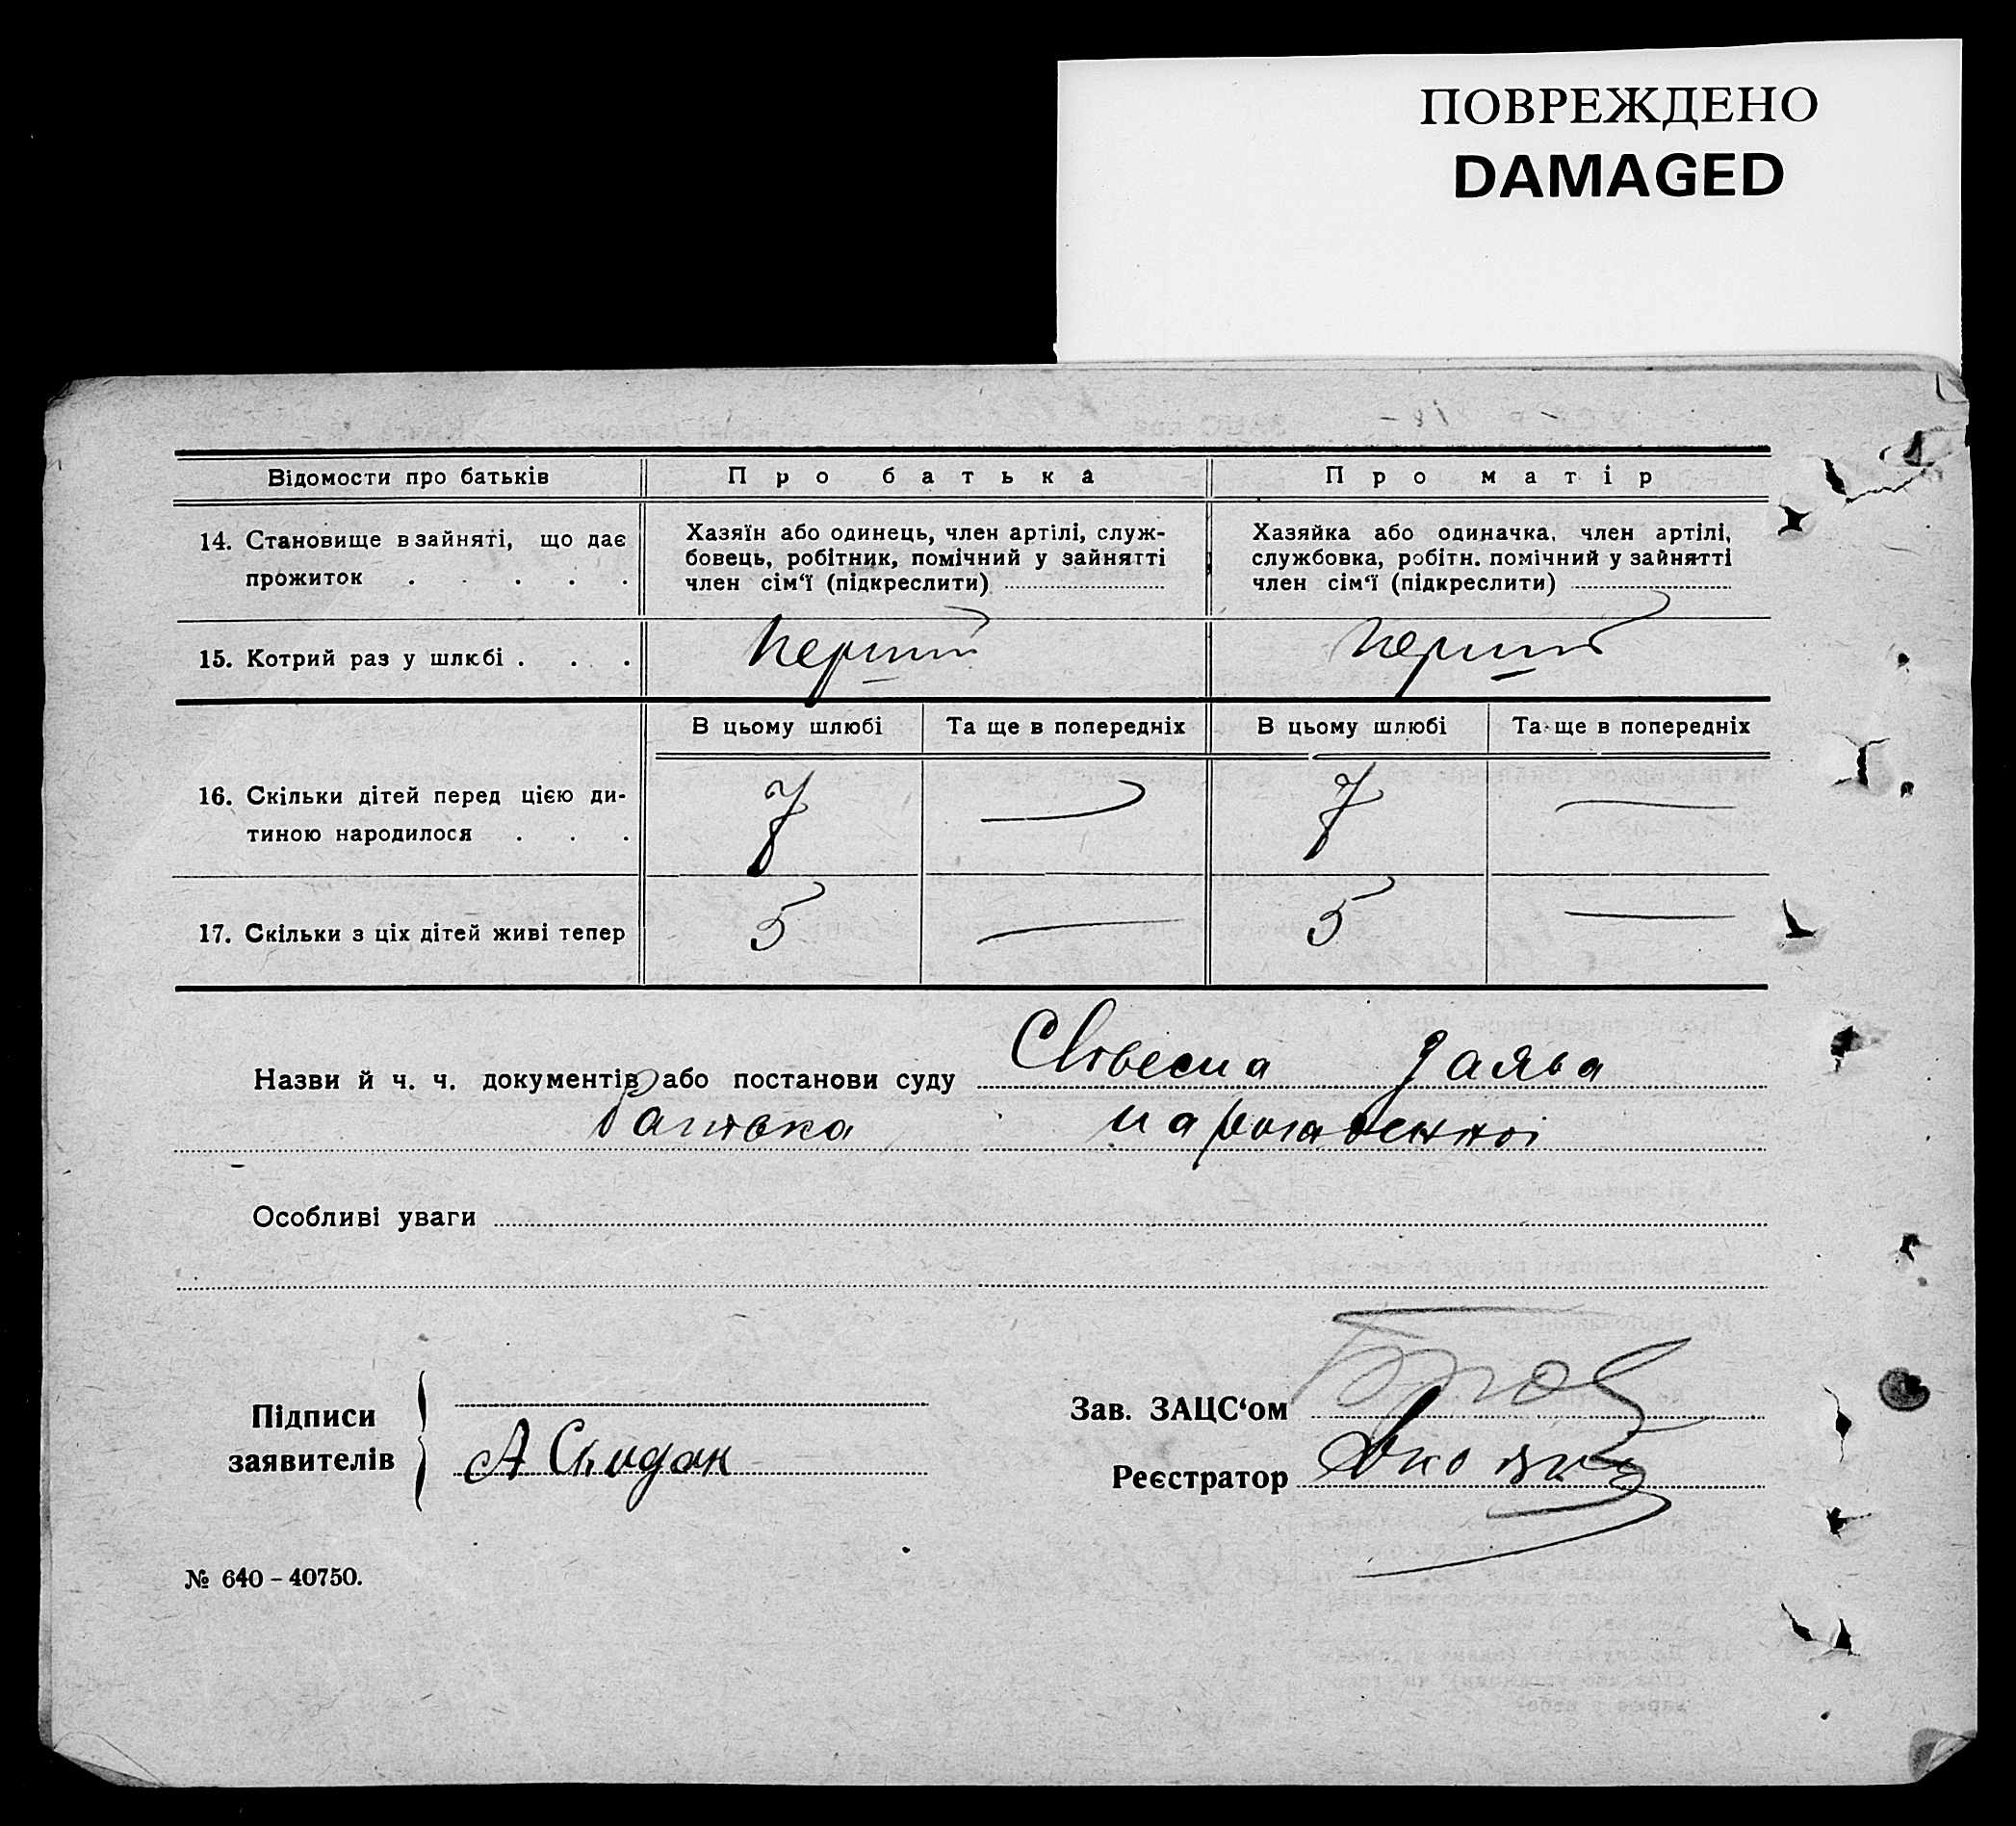 ПОВРЕЖДЕНО
DAMAGED
Відомости про батьків
Про батька
Про матір
14. Становище в зайняті, що дає
прожиток . . . . .
Хазяїн або одинець, член артілі, служ-
бовець, робітник, помічний у зайнятті
член сім‘ї (підкреслити)
Хазяйка або одиначка, член артілі,
службовка, робітн. помічний у зайнятті
член сім‘ї (підкреслити)
15. Котрий раз у шлюбі . . .
перший
перший
В цьому шлюбі
Та ще в попередніх
В цьому шлюбі
Та ще в попередніх
16. Скільки дітей перед цією ди-
тиною народилося . . .
7 — 7 —
17. Скільки з ціх дітей живі тепер
5 — 5 —
Назви й ч. ч. документів або постанови суду Словесна заява
батька народженної
Особливі уваги
Підписи
заявителів
А
Зав. ЗАЦС‘ом
Реєстратор
№ 640 – 40750.